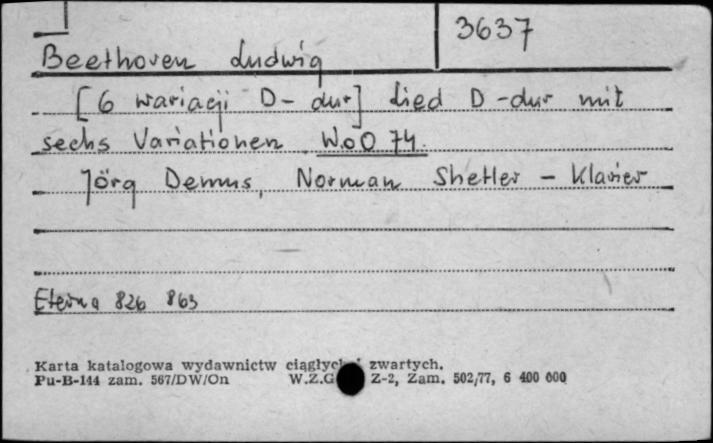 3637
Beethoven Ludwig
[6 wariacji D-dur] Lied D-dur mit
sechs Variationen WoO 74.
Jörg Demus, Norman Shetler - Klavier
Eterna 826 863
Karta katalogowa wydawnictw ciągłych i zwartych.
Pu-B-144 zam. 567/DW/On W.Z.G Z-2, Zam. 502/77, 6 400 000